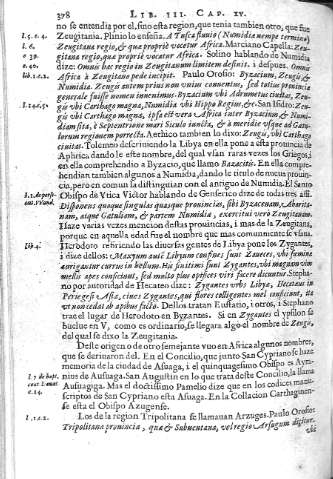 378 LIB. III. CAP. IV.
no se entendia por el, sino esta region, que tenia tambien otro, que fue
l. 5. c. 4. Zeugitania. Plinio lo enseña. A Tusca fluvio (Numidia nempe termino)
l. 6. Zeugitana regio, & qua propriè vocetur Africa. Marciano Capella: Zeu-
gitana regio, quæ propriè vocatur Africa. Solino
omnis hac regio in Zeugitanum limitem desinit. i despues. Omnis
lib. 1. c. 2. Africa à Zeugitano pede incipit. Paulo Orosio: Byzacium, Zeugis &
Numidia. Zeugis autem prius non unius conventus, sed totius provinciæ
generale fuisse nomen invenimus. Byzacium ubi Adrumetus civitas, Zeu-
gis ubi Carthago magna, Numidia ubi Hippo Regius, &c. San Isidro: Zeu-
gis ubi Carthago magna, ipsa est vera Africa inter Byzacium & Numi-
diam sita, à Septentrione mari Siculo iuncta, & à meridie usque ad Gætu-
lorum regionem porrecta. Aethico tambien lo dixo: Zeugi, ubi Carthago
civitas. Tolemeo descriviendo la Libya en ella pone a esta provincia de
Aphrica, dandole este nombre, del qual usan raras vezes los Griegos i
en ella comprehendio a Byzacio, que llama Bazacitis. En ella compre-
hendian tambien algunos a Numidia, dando le titulo de nueva provin-
cia, pero en comun la distinguian con el antiguo de Numidia. El Santo
Obispo de Utica Victor hablando de Genserico dize de todas tres assi.
Disponens quoque singulas quasque provincias, sibi Byzacenam, Abarita-
nam, atque Gætuliam, & partem Numidiæ, exercitui verò Zeugitanam.
Haze varias vezes mencion destas provincias, i mas de la Zeugitana,
porque en aquella edad fue el nombre que mas comunmente se usava.
lib. 4. Herodoto refiriendo las diversas gentes de Libya pone los Zygantes,
i dize dellos: Maxyum autẽ Libyum confines sunt Zaueces, ubi fæminæ
aurigantur currus in bellum. His finitimi sunt Zygantes, ubi magnam vim
mellis apes conficiunt, sed multo plus opifices viri facere dicuntur. Stepha-
no por autoridad de Hecateo dize: Zygantes urbs Libyæ, Hecatæus in
Periegesi Asiæ, cives Zygantes, qui flores colligentes mel conficiunt, ita
ut non cedat ab apibus factis. Dellos tratan Eustatio, i otros, i Stephano
trae el lugar de Herodoto en Byzantes. Si en Zygantes el ypsilon se
buelve en V, como es ordinario, se llegara algo el nombre de Zeugi,
del qual se dixo la Zeugitania.
Deste origen o de otro semejante uvo en Africa algunos nombres,
que se derivaron del. En el Concilio, que junto San Cypriano se haze
memoria de la ciudad de Ausuaga, i el quinquagesimo Obispo es Aym-
nius de Ausuaga. San Augustin en lo que trata deste Concilio, la llama
Ausuagiga. Mas el doctissimo Pamelio dize que en los codices manu-
scriptos de San Cypriano esta Ausuaga. En la Collacion Carthaginen-
se esta el Obispo Azugense.
l. 1. c. 2. Los de la region Tripolitana se llamavan Arzuges. Paulo Orosio:
Tripolitana provincia, quæ & Subventana, vel regio Arsugum dicitur,
ubi